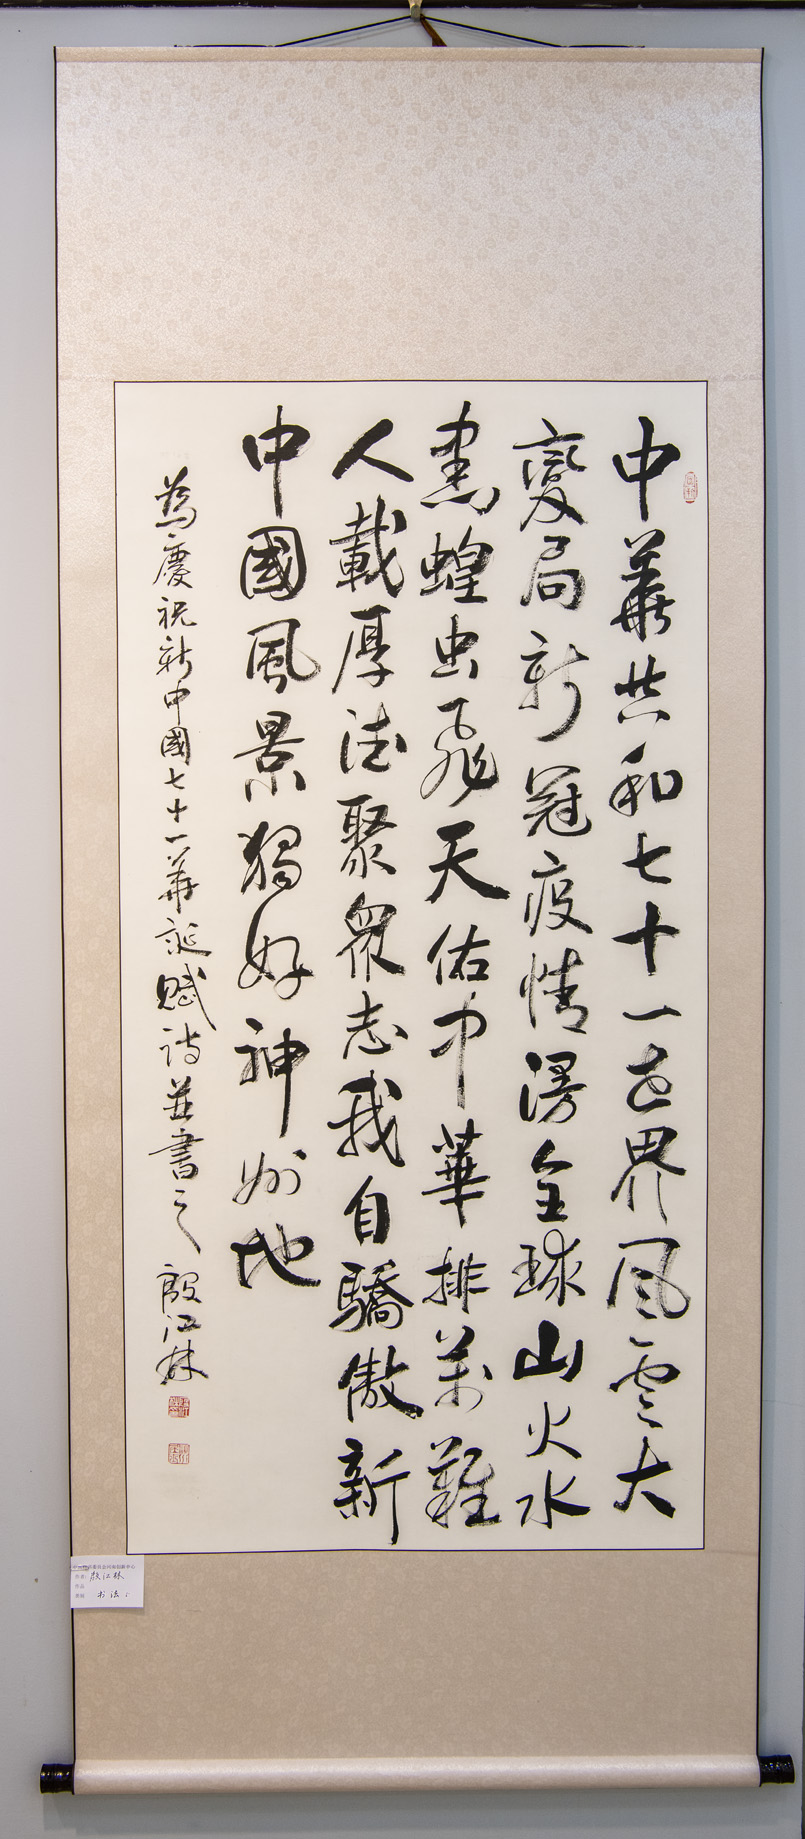 中華共和七十一世界風雲大
變局新冠疫情漫全球山火水
患蝗虫飛天佑中華排萬難
人載厚德聚眾志我自驕傲新
中國風景獨好神州地
為慶祝新中國七十一華誕賦詩並書之 殷江林
作者 殷江林
作品
类别 书法